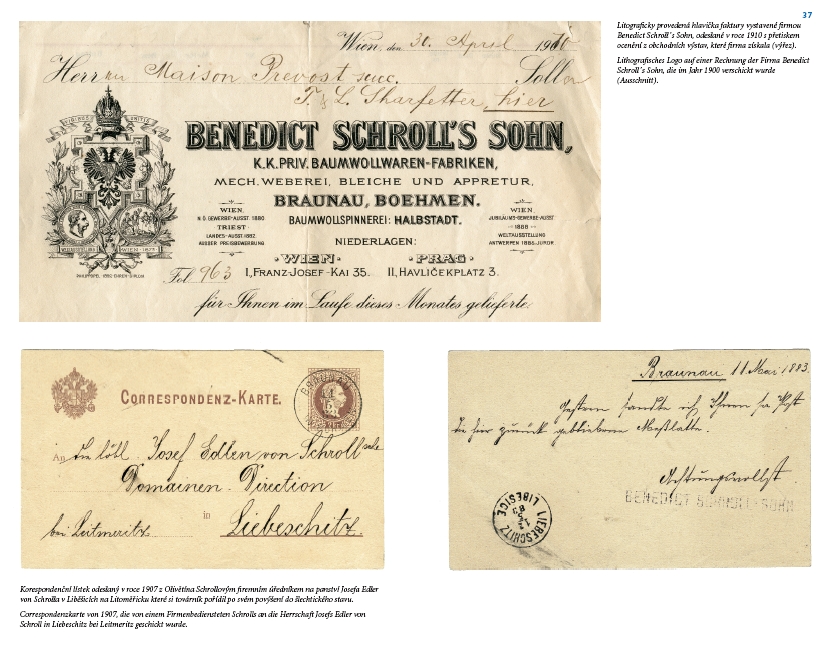 37
Litograficky provedená hlavička faktury vystavené firmou
Benedict Schroll´s Sohn, odeslané v roce 1910 s přetiskem
ocenění z obchodních výstav, které firma získala (výřez).
Lithografisches Logo auf einer Rechnung der Firma Benedict
Schroll´s Sohn, die im Jahr 1900 verschickt wurde
(Ausschnitt).
Wien, den 30. April 1910
Herrn Maison Prevost succ. Sollen
T. & L. Sharfetter, hier
VIRIBUS UNITIS
BENEDICT SCHROLL'S SOHN,
K.K. PRIV. BAUMWOLLWAREN-FABRIKEN,
MECH. WEBEREI, BLEICHE UND APPRETUR,
BRAUNAU, BOEHMEN.
BAUMWOLLSPINNEREI: HALBSTADT.
WIEN,
N.Ö. GEWERBE-AUSST. 1880
TRIEST
LANDES-AUSST. 1882
AUSSER PREISBEWERBUNG
WIEN,
JUBILÄUMS-GEWERBE-AUSST.
1888
WELTAUSSTELLUNG
ANTWERPEN 1885. JUROR.
NIEDERLAGEN:
WIEN PRAG
I, FRANZ-JOSEF-KAI 35. II, HAVLIČEKPLATZ 3.
WIEN 1873
Fol 963
für Ihnen im Laufe dieses Monates gelieferte
CORRESPONDENZ-KARTE.
An die löbl. Josef Edlen von Schroll sche
Domainen Direction
in
bei Leitmeritz Liebeschitz.
Braunau 11 Mai 1883.
Gestern sandte ich Ihnen per Post
die hier zurück gebliebene Meßlatte.
Achtungsvollst
BENEDICT SCHROLL'S SOHN
LIEBESCHITZ
LIBESICE
Korespondenční lístek odeslaný v roce 1907 z Olivětína Schrollovým firemním úředníkem na panství Josefa Edler
von Schrolla v Liběšicích na Litoměřicku které si továrník pořídil po svém povýšení do šlechtického stavu.
Correspondenzkarte von 1907, die von einem Firmenbediensteten Schrolls an die Herrschaft Josefs Edler von
Schroll in Liebeschitz bei Leitmeritz geschickt wurde.